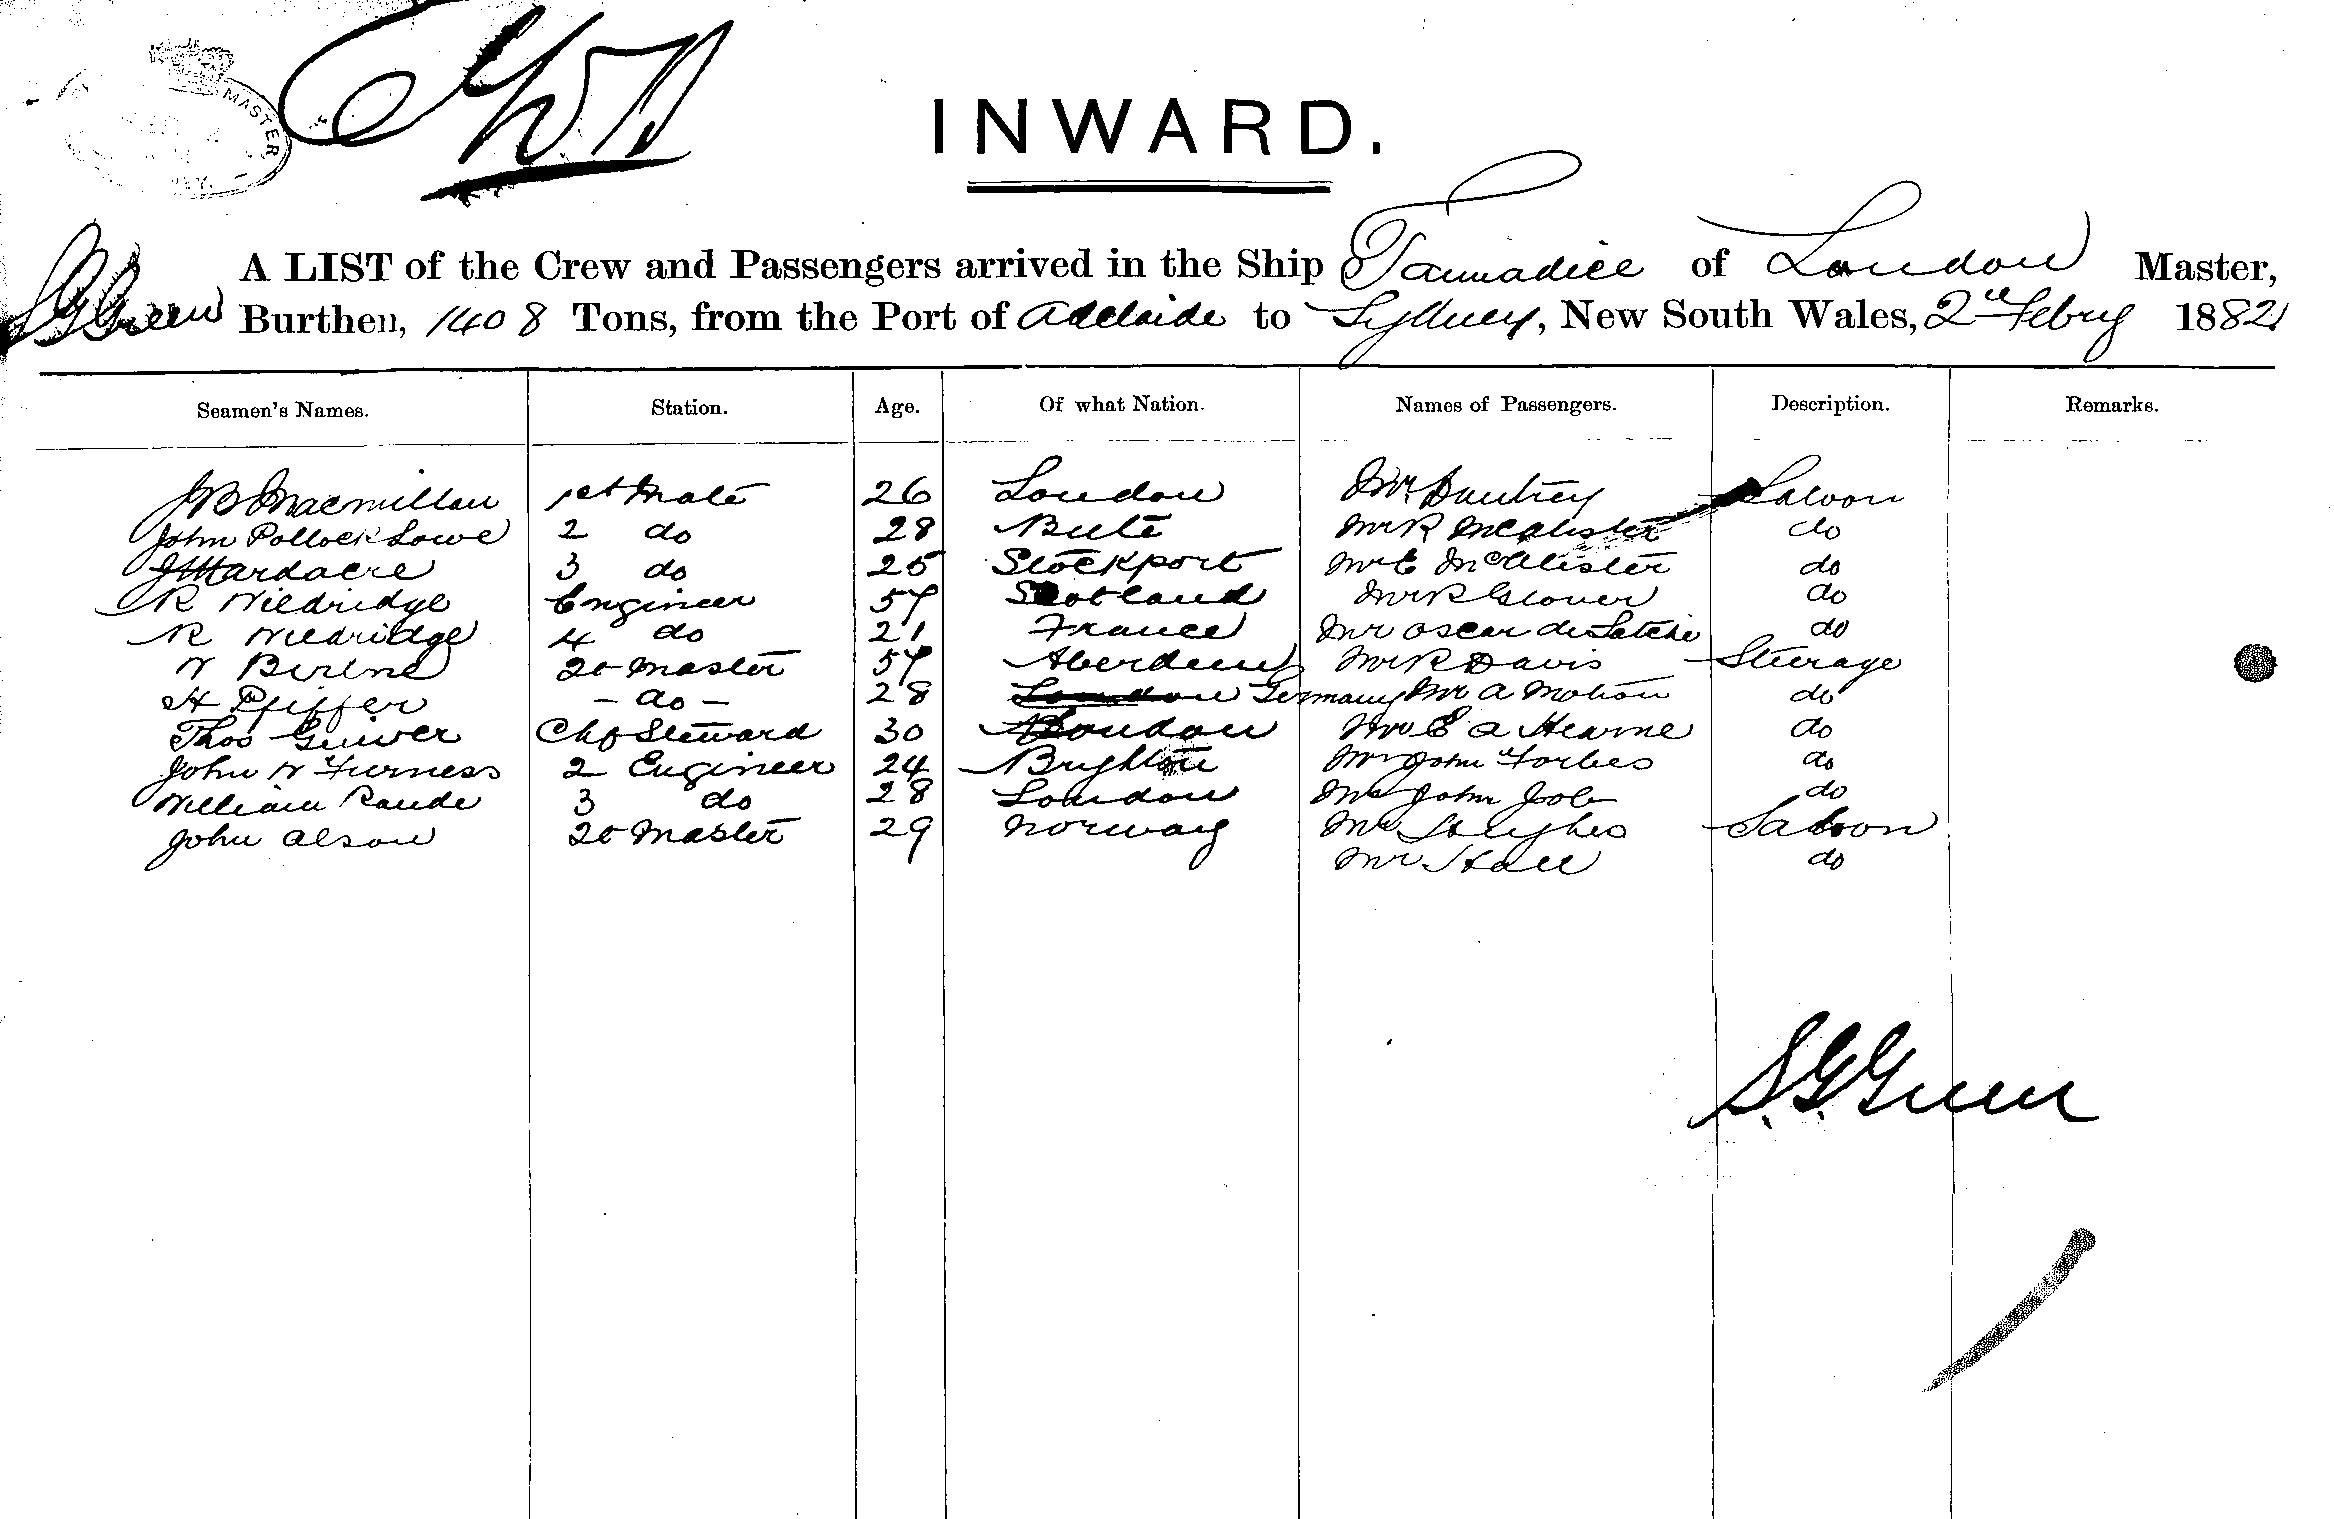 MASTER
INWARD.
A LIST of the Crew and Passengers arrived in the Ship Tannadice of London Master,
S G Green Burthen, 1408 Tons, from the Port of Adelaide to Sydney, New South Wales, 2nd Febry 1882
Seamen's Names. Station. Age. Of what Nation. Names of Passengers. Description. Remarks.
J B Macmillan 1st Mate 26 London Mr Dautrey Saloon
John Pollock Lowe 2 do 28 Bute Mr R McAlister do
J Hardacre 3 do 25 Stockport Mr C McAlister do
R Wildridge Engineer 54 Scotland Mr R Glover do
R Wildridge 4 do 21 France Mr Oscar do
W 2d Master 54 Aberdeen Mr R Davis Steerage
H Pfiffer - do - 28 London Germany Mr A Motion do
Thos Guiver Chf Steward 30 London Mr E A Hearne do
John W Furness 2 Engineer 24 Brighton Mr John Forbes do
William Raude 3 do 28 London Mr John Job do
John Alson 2d Master 29 Norway Mr Saloon
Mr Hall do
S. G. Green